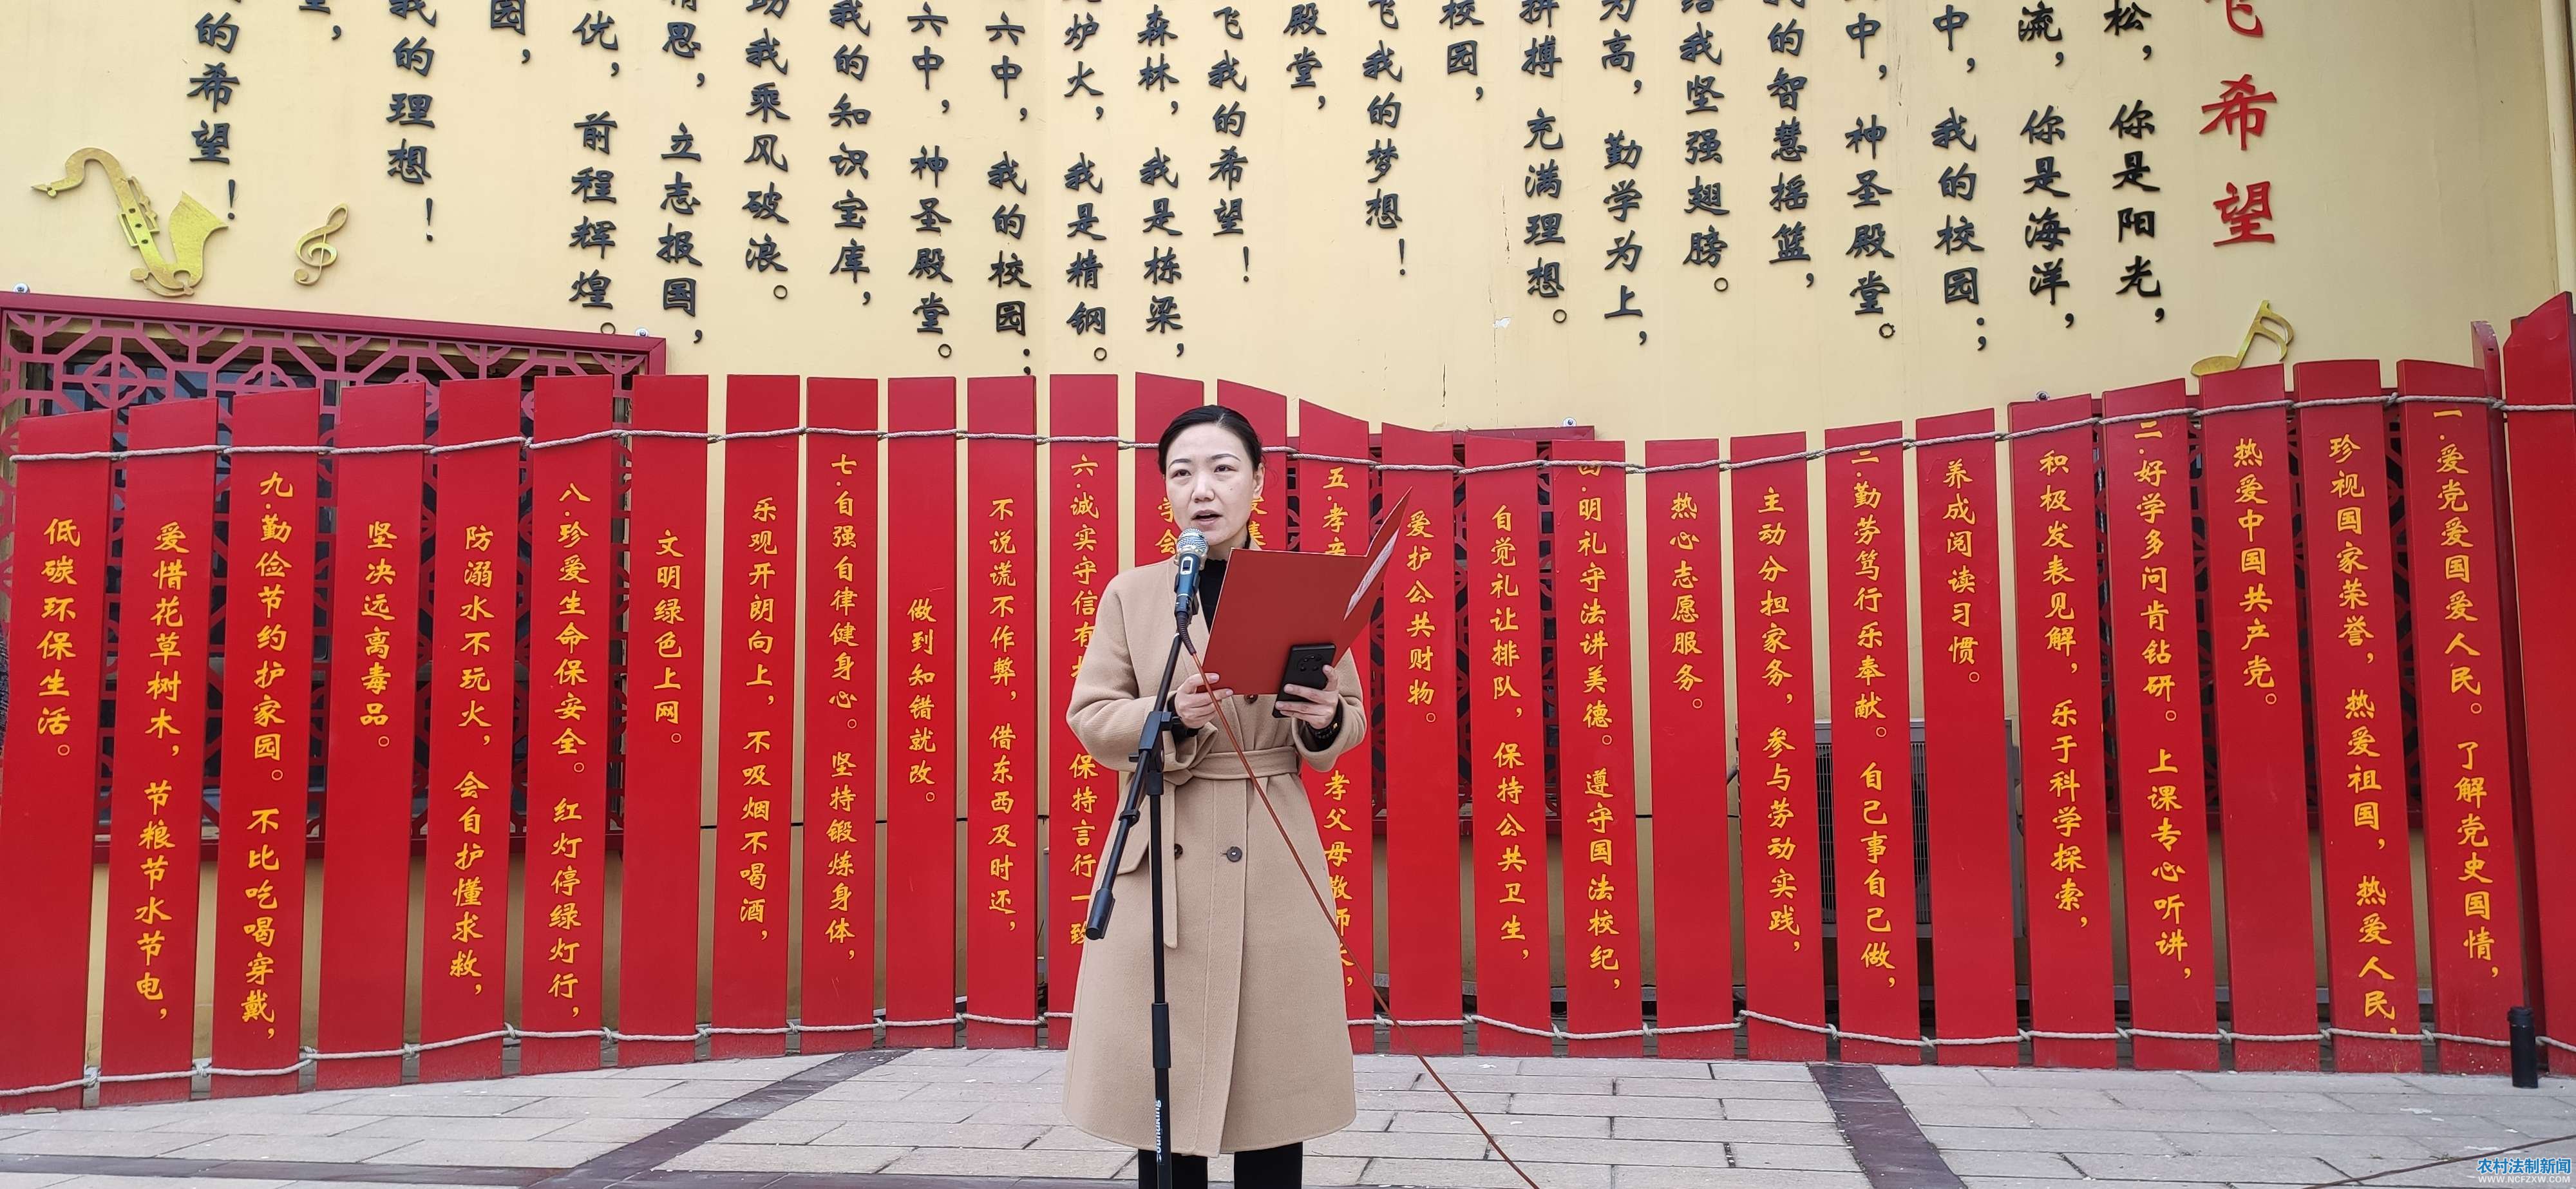 飞希望
松，你是阳光，
流，你是海洋，
中，我的校园；
中，神圣殿堂。
的智慧摇篮，
给我坚强翅膀。
为高，勤学为上，
拼搏 充满理想。
校园，
飞我的梦想！
殿堂，
飞我的希望！
森林，我是栋梁，
炉火，我是精钢。
六中，我的校园；
六中，神圣殿堂。
我的知识宝库，
助我乘风破浪。
思，立志报国，
优，前程辉煌。
园，
我的理想！
，
的希望！
一.爱党爱国爱人民。了解党史国情，
珍视国家荣誉，热爱祖国，热爱人民，
热爱中国共产党。
二.好学多问肯钻研。上课专心听讲，
积极发表见解，乐于科学探索，
养成阅读习惯。
三.勤劳笃行乐奉献。自己事自己做，
主动分担家务，参与劳动实践，
热心志愿服务。
四.明礼守法讲美德。遵守国法校纪，
自觉礼让排队，保持公共卫生，
爱护公共财物。
五.孝 孝父母敬师长，
学会
六.诚实守信有 保持言行一致
不说谎不作弊，借东西及时还，
做到知错就改。
七.自强自律健身心。坚持锻炼身体，
乐观开朗向上，不吸烟不喝酒，
文明绿色上网。
八.珍爱生命保安全。红灯停绿灯行，
防溺水不玩火，会自护懂求救，
坚决远离毒品。
九.勤俭节约护家园。不比吃喝穿戴，
爱惜花草树木，节粮节水节电，
低碳环保生活。
农村法制新闻
WWW.NCFZXW.COM